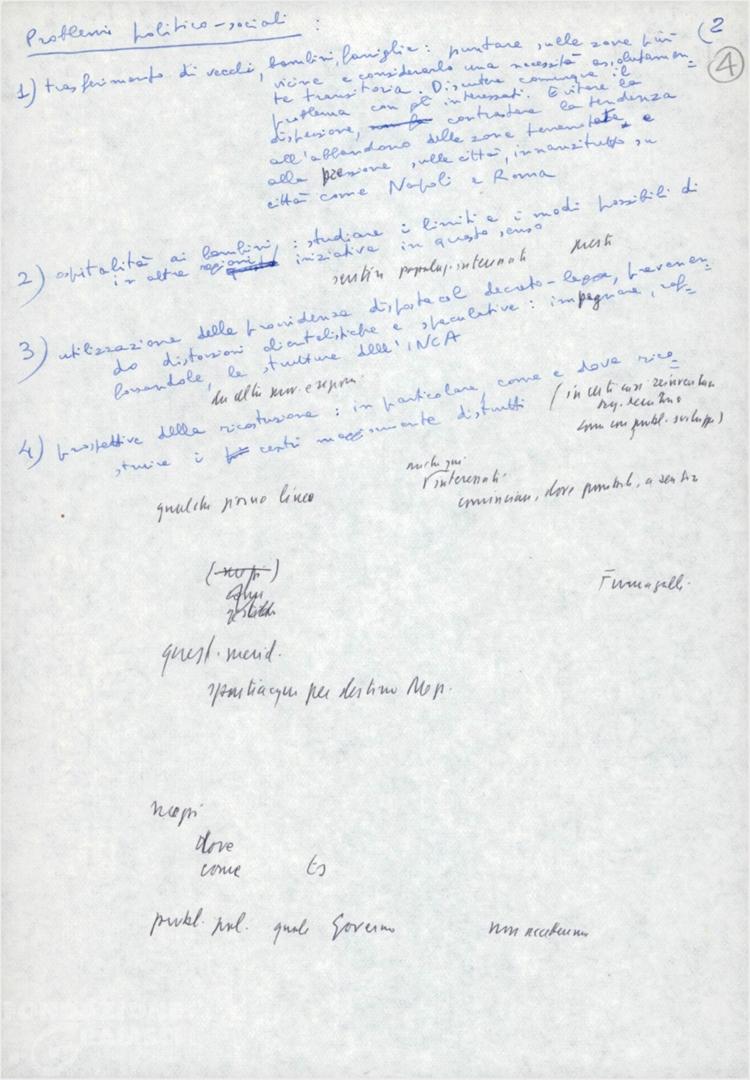 Problemi politico-sociali :
(2
4
1) trasferimento di vecchi, bambini, famiglie : puntare sulle zone più
vicine e considerarlo una necessità assolutamen=
te transitoria. Discutere comunque il
problema con gli interessati. Evitare la
dispersione, contrastare la tendenza
all'abbandono delle zone terremotate e
alla pressione sulle città, innanzitutto su
città come Napoli e Roma
2) ospitalità ai bambini, : studiare i limiti e i modi possibili di
in altre regioni, iniziativa in questo senso
sentire popolaz. interessati
3) utilizzazione delle provvidenze disposte col decreto-legge, prevenen=
do distorsioni clientelistiche e speculative : impegnare, raf=
forzandole, le strutture dell'INCA
4) prospettive della ricostruzione : in particolare, come e dove rico=
struire i centri maggiormente distrutti
(in certi casi reinventare
anche qui
interessati
qualche giorno
cominciare, dove possibile, a sentire
Fumagalli
quest. merid.
spartiacque per destino Mep.
dove
come
probl. pol. quale Governo